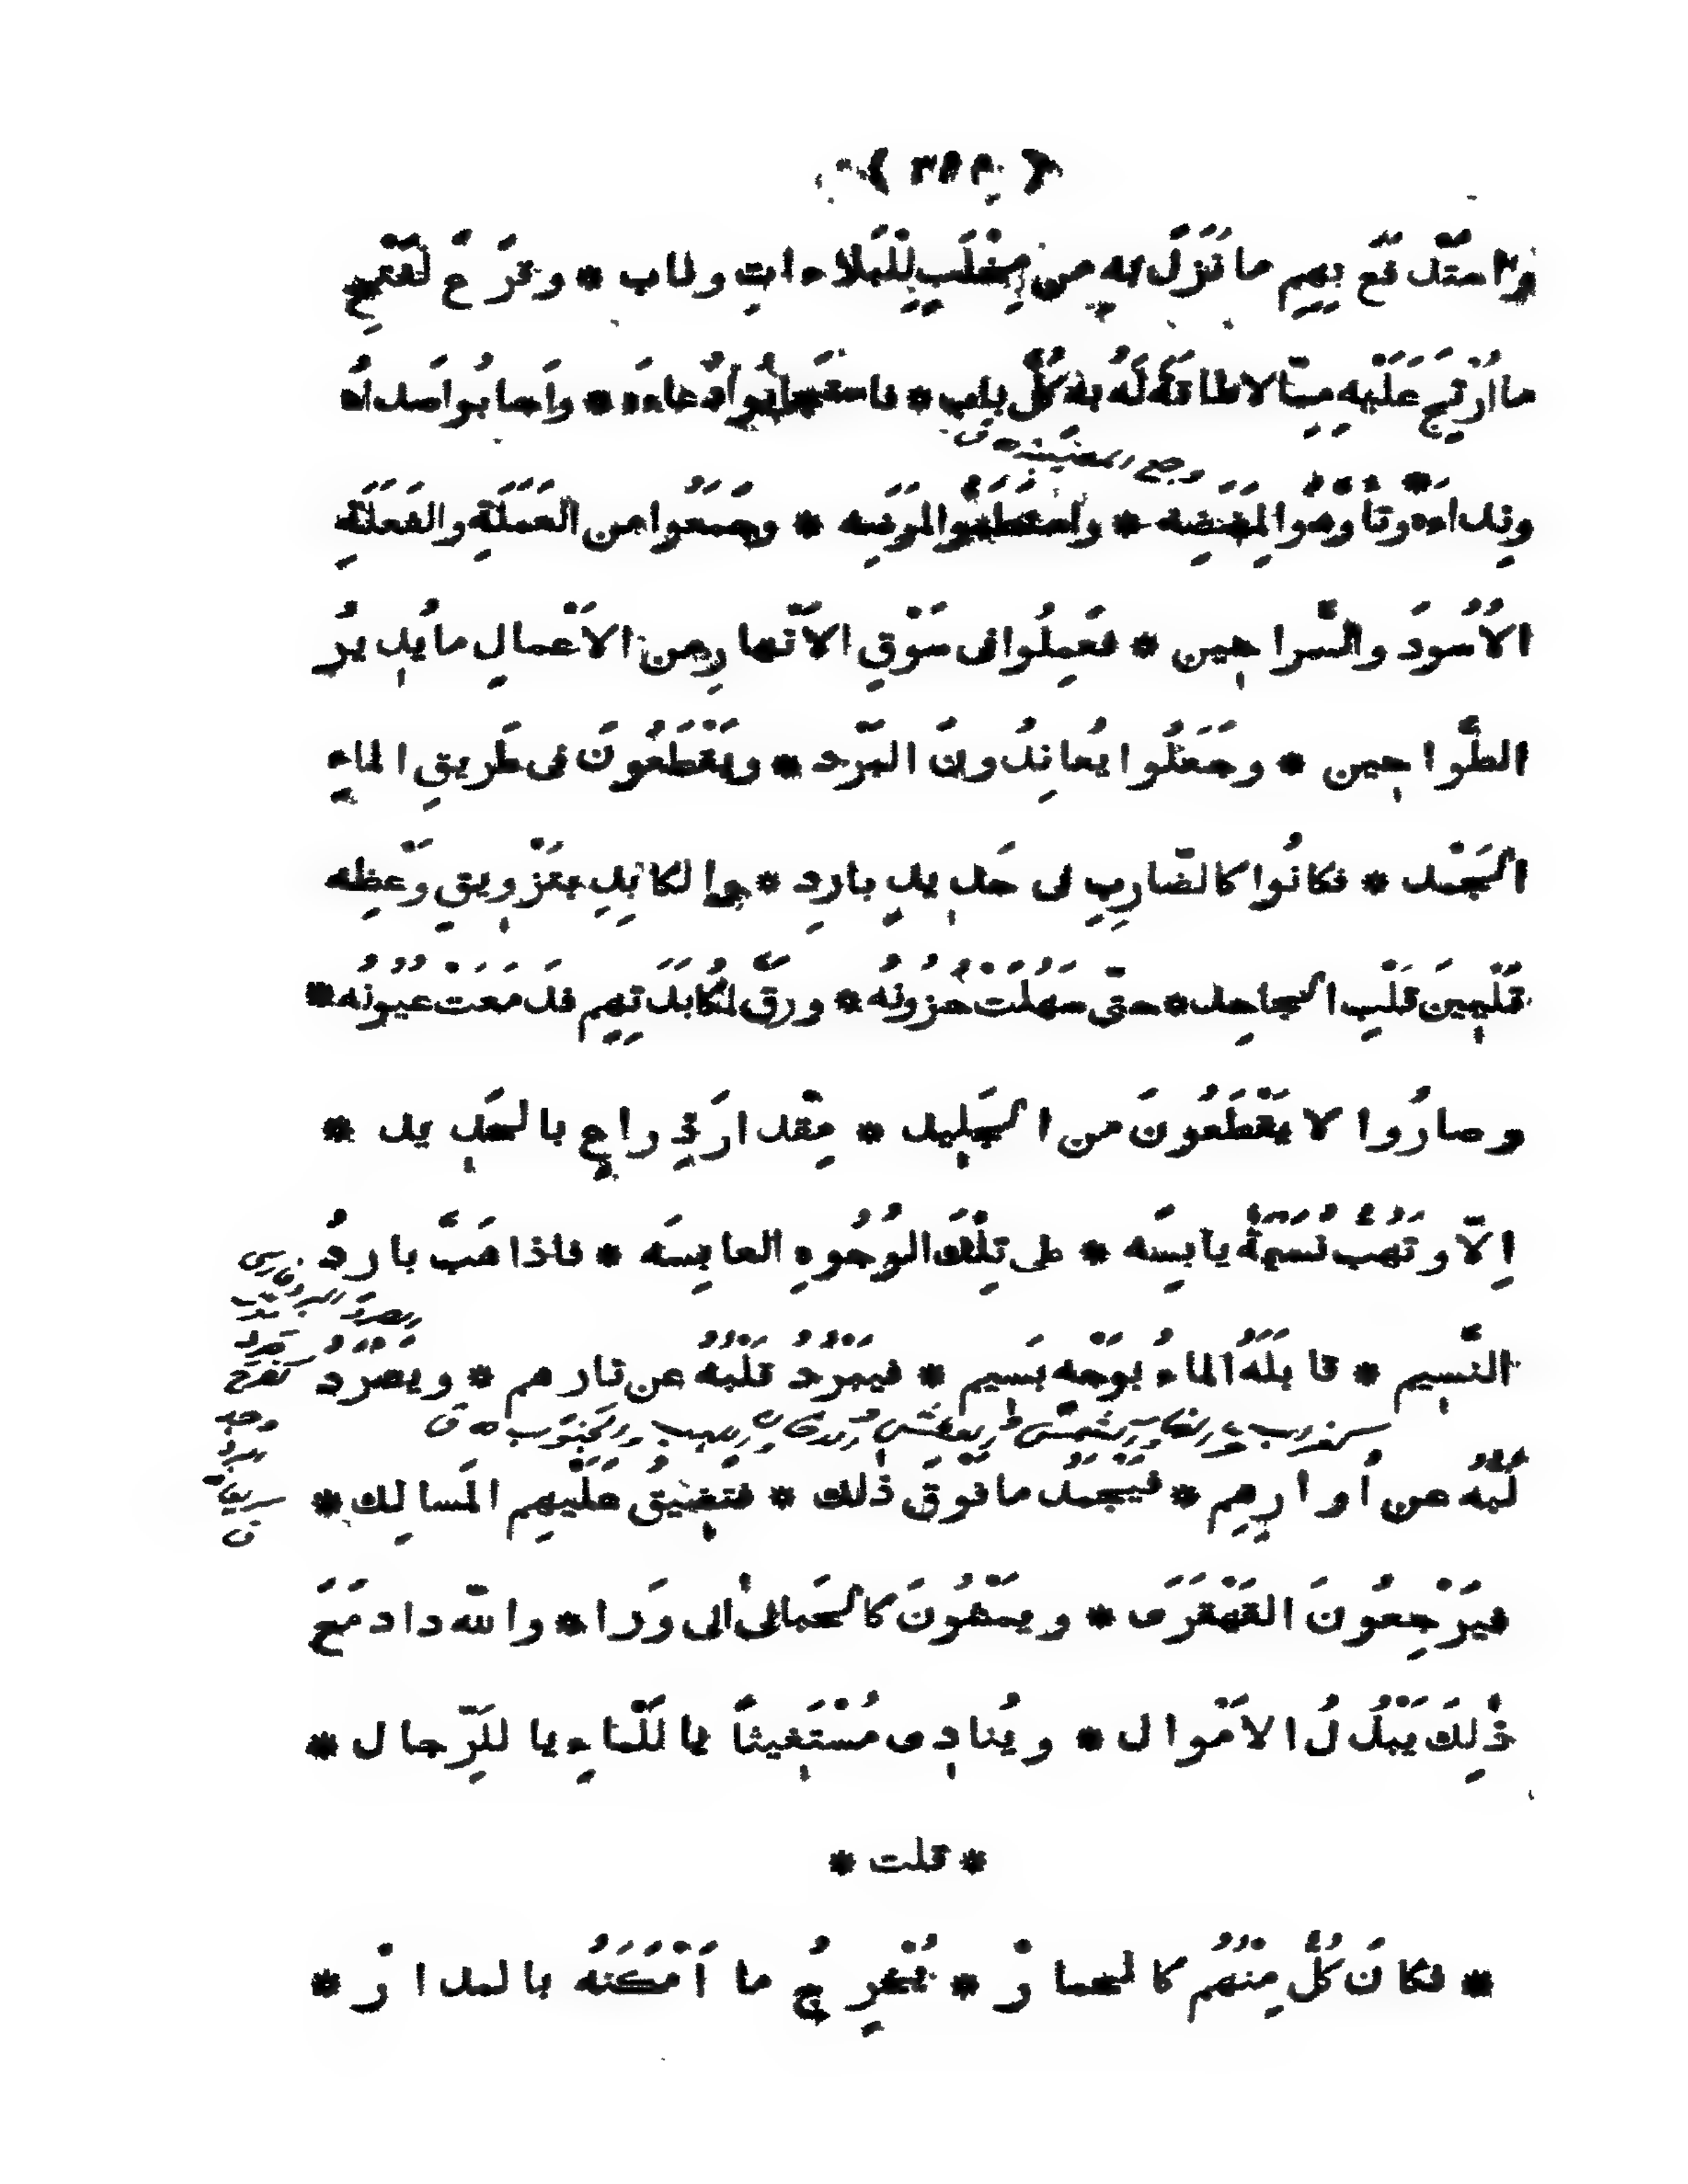 ( ٣٥٣ )
واسْتَدْفَعَ بِهِم ما نَزَلَ به مِن مِخْلَبٍ لِلْبَلاءِ اتٍ وناب * وقَرَعَ لفَتْحِ
ما اُرْتِجَ عَلَيْه مِمّا لا طاقَةَ لَهُ به كُلَّ باب * فاستَجابُوا دُعاءه * واَجابُوا صداه
ونِداءه وتَأَوَّهُوا لِمَضَضِه * واستَعْطَفُوا لمَرَضِه * وجَمَعُوا من العَمَلَةِ والفَعَلَةِ
الاُسُودَ والسَّراحِين * فعَمِلُوا فى سَوْقِ الاَنْهارِ من الاَعْمالِ ما يُدِيرُ
الطَّواحِين * وجَعَلُوا يُعانِدُونَ البَرْد * ويَقْطَعُونَ فى طَرِيقِ الماءِ
الجَمْد * فكانُوا كالضّارِبِ فى حَدِيدٍ بارِد * والكابِدِ بتَزْوِيقِ وَعْظِه
تَلْيِينَ قَلْبِ الجاحِد * حتّى سَهُلَتْ حُزونُه * ورَقَّ لمُكابَدَتِهِم فدَمَعَت عيونُه *
وصارُوا لا يَقْطَعُونَ من الجَلِيد * مِقْدارَ ذِراعٍ بالحَدِيد *
اِلّا وتَهُبُّ نُسَيْمَةٌ يابِسَه * على تِلْكَ الوُجُوهِ العابِسَه * فاذا هَبَّ بارِدُ
النَّسِيم * قابَلَهُ الماءُ بوَجْه بَسِيم * فيَبْرُدُ قَلْبُهُ عن نارهم * ويَصْرَدُ
لُبُّهُ عن اُوارِهِم * فيَجْمُدُ ما فَوْقَ ذٰلك * فتَضِيقُ عَلَيهِم المَسالِك *
فيَرْجِعُونَ القَهْقَرَى * ويمشُونَ كالحَبالىٰ الى وَرا * واللّه داد مَعَ
ذٰلِكَ يَبْذُلُ الاَمْوال * ويُنادِى مُسْتَغِيثاً يا لَلْماءِ يا للرِّجال *
* قلت *
* فكانَ كُلٌّ مِنْهُم كالحمارْ * يُخْرِجُ ما اَمْكَنَهُ بالمدارْ *